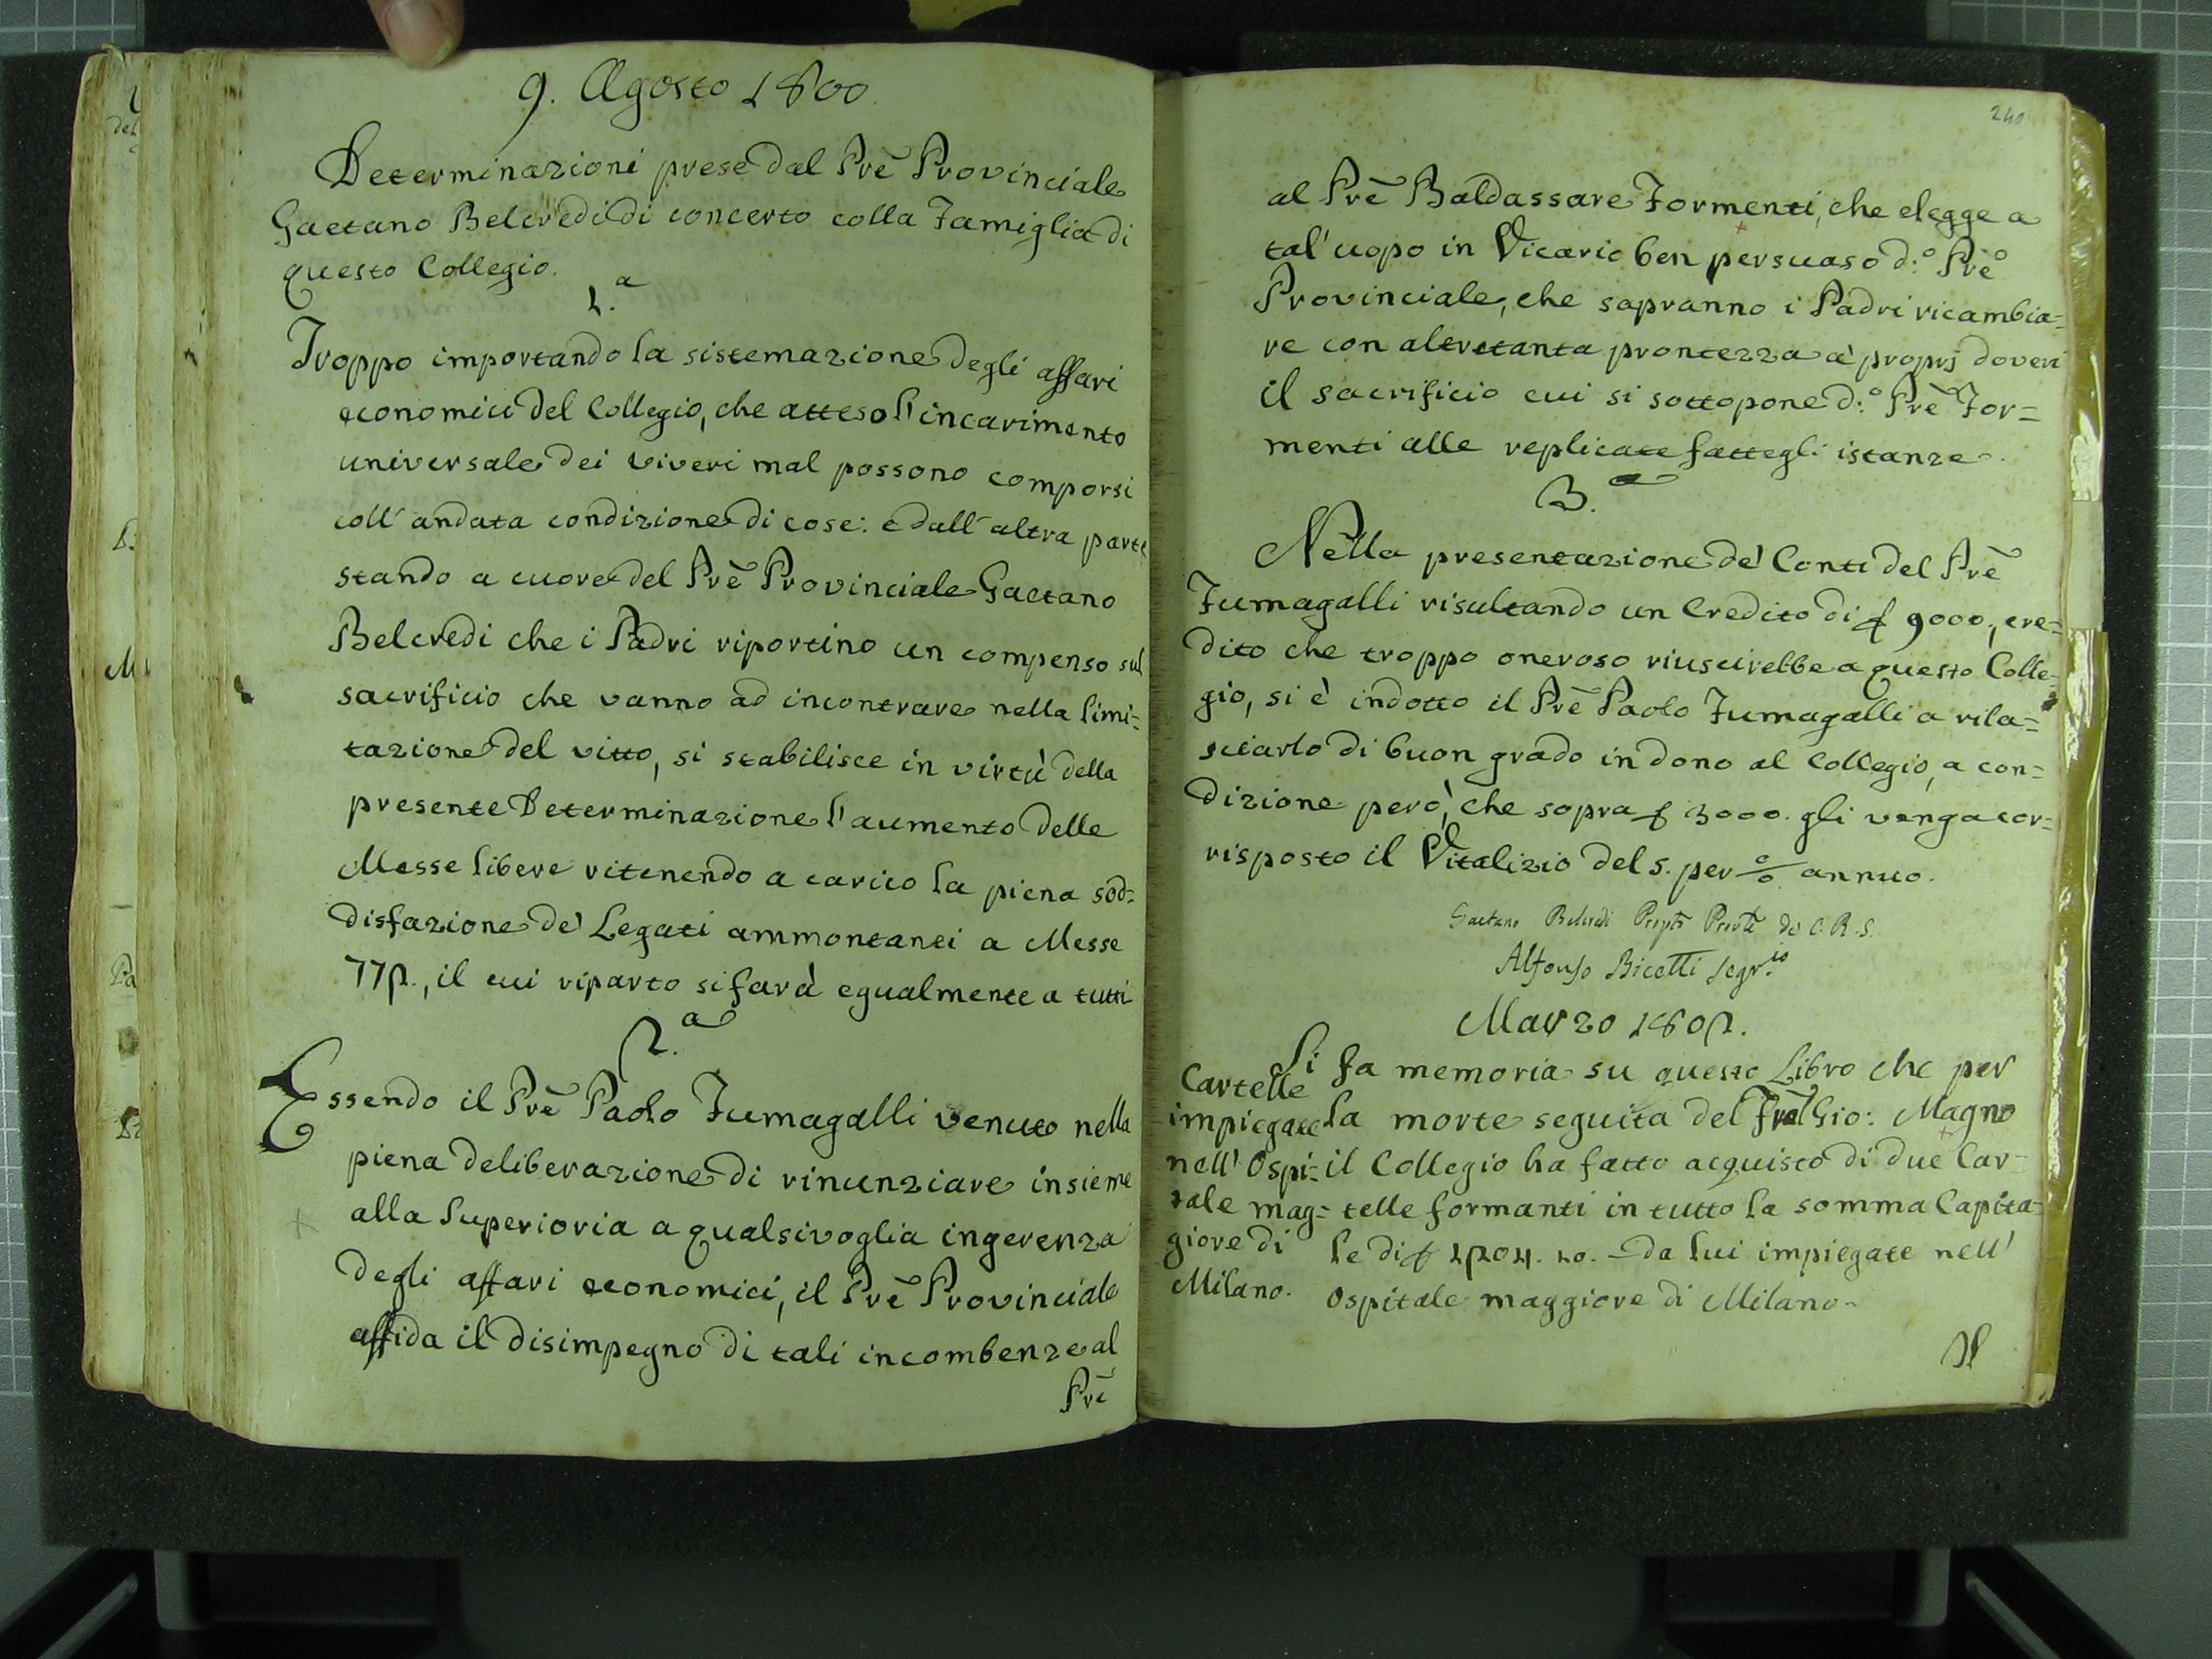 9. Agosto 1800.
Determinazioni prese dal Prē Provinciale
Gaetano Belcredi di concerto colla Famiglia di
questo Collegio.
1.a
Troppo importando la sistemazione degli affari
economici del Collegio, che atteso l'incarimento
universale dei viveri mal possono comporsi
coll'andata condizione di cose: e dall'altra parte
stando a cuore del Prē Provinciale Gaetano
Belcredi che i Padri riportino un compenso sul
sacrificio che vanno ad incontrare nella limi=
tazione del vitto, si stabilisce in virtù della
presente Determinazione l'aumento delle
Messe libere ritenendo a carico la piena sod=
disfazione de' Legati ammontanti a Messe
772., il cui riparto si farà egualmente a tutti
2.a
Essendo il Prē Paolo Fumagalli venuto nella
piena deliberazione di rinunziare insieme
alla Superioria a qualsivoglia ingerenza
degli affari economici, il Prē Provinciale
affida il disimpegno di tali incombenze al
Prē
240
al Prē Baldassare Formenti, che elegge a
tal'uopo in Vicario ben persuaso d:o Prē
Provinciale, che sapranno i Padri ricambia=
re con altretanta prontezza a' proprj doveri
il sacrificio cui si sottopone d:o Prē For=
menti alle replicate fattegli istanze.
3.a
Nella presentazione de' Conti del Prē
Fumagalli risultando un Credito di £ 9000., cre=
dito che troppo oneroso riuscirebbe a questo Colle=
gio, si è indotto il Prē Paolo Fumagalli a rila=
sciarlo di buon grado in dono al Collegio, a con=
dizione però, che sopra £ 3000. gli venga cor=
risposto il Vitalizio del 5. per % annuo.
Gaetano Belcredi Prep.to Prov.le de C. R. S.
Alfonso Bicetti Segr.io
Marzo 1802.
Cartelle
impiegate
nell' Ospi=
tale mag=
giore di
Milano.
Si fa memoria su questo Libro che per
la morte seguita del Frãl Gio: Magno
il Collegio ha fatto acquisto di due Car=
telle formanti in tutto la somma Capita=
le di £ 1204. 10. - da lui impiegate nell'
Ospitale maggiore di Milano.
Il